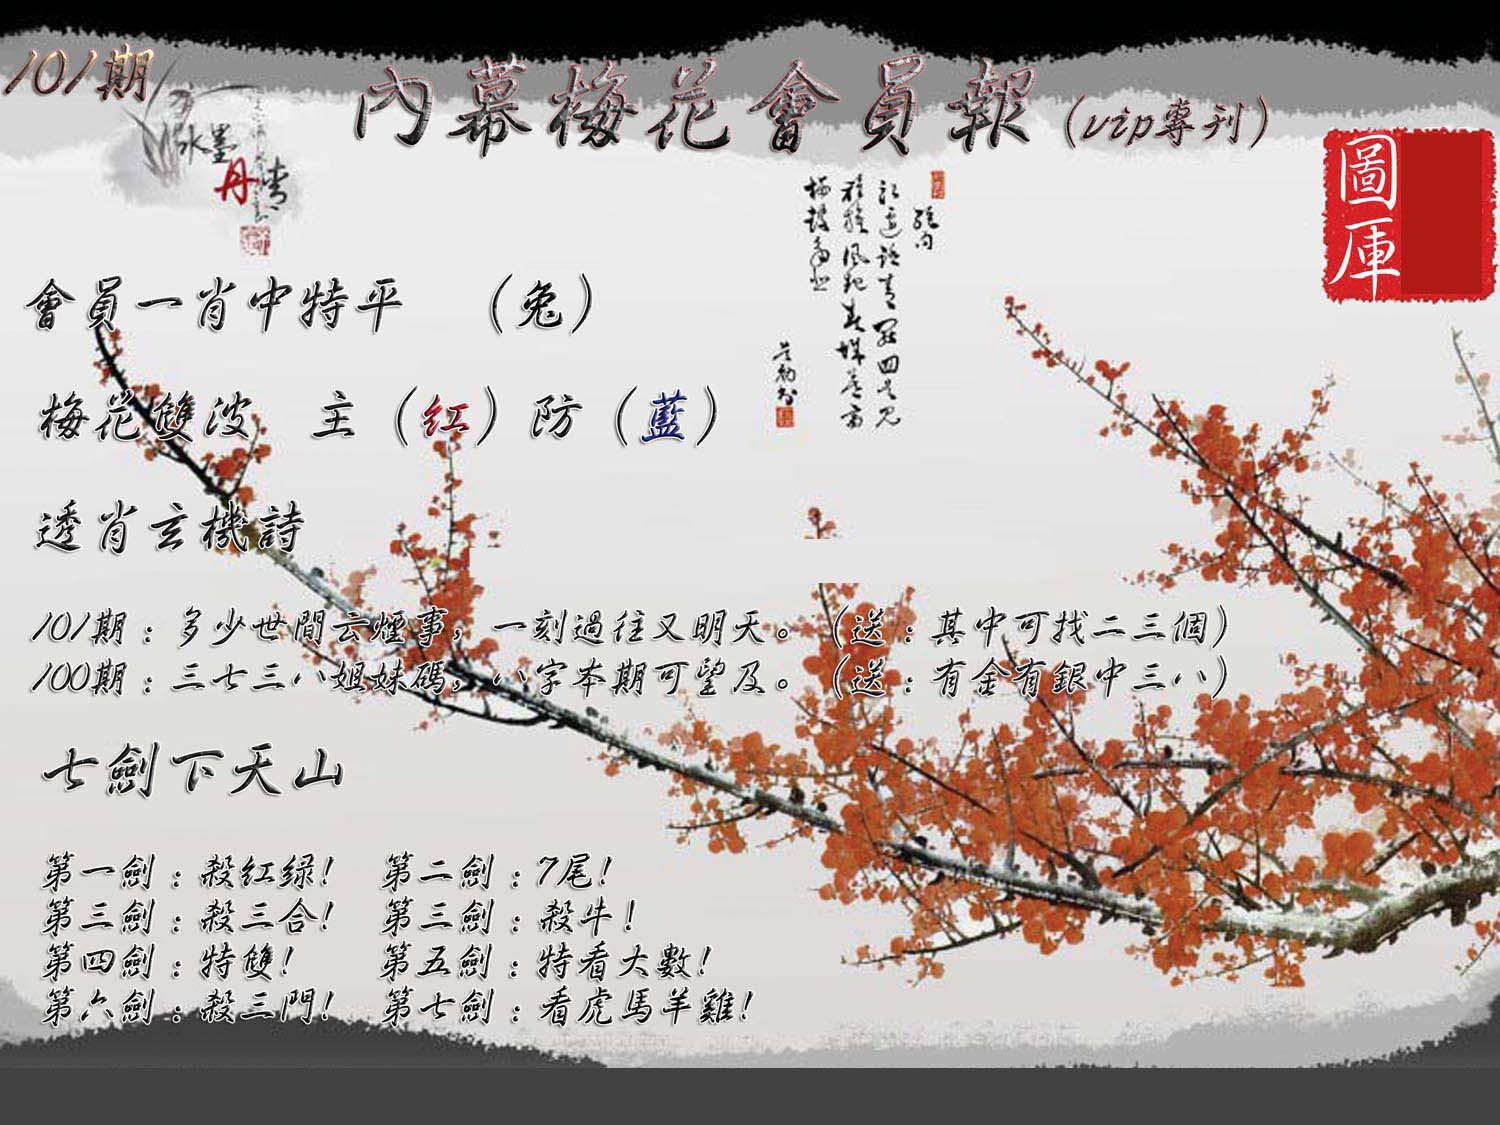 101期
內幕梅花會員報(vip專刊)
水墨
丹青
圖庫
會員一肖中特平 (兔)
梅花雙波 主(紅)防(藍)
透肖玄機詩
101期:多少世間云煙事,一刻過往又明天。(送:其中可找二三個)
100期:三七三八姐妹碼,八字本期可望及。(送:有金有銀中三八)
七劍下天山
第一劍:殺紅绿! 第二劍:7尾!
第三劍:殺三合! 第三劍:殺牛!
第四劍:特雙! 第五劍:特看大數!
第六劍:殺三門! 第七劍:看虎馬羊雞!